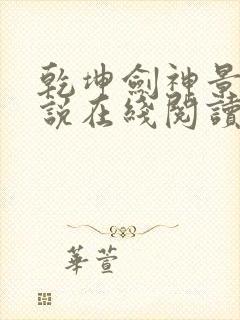 乾坤劍神景
說在綫閱讀
華萱